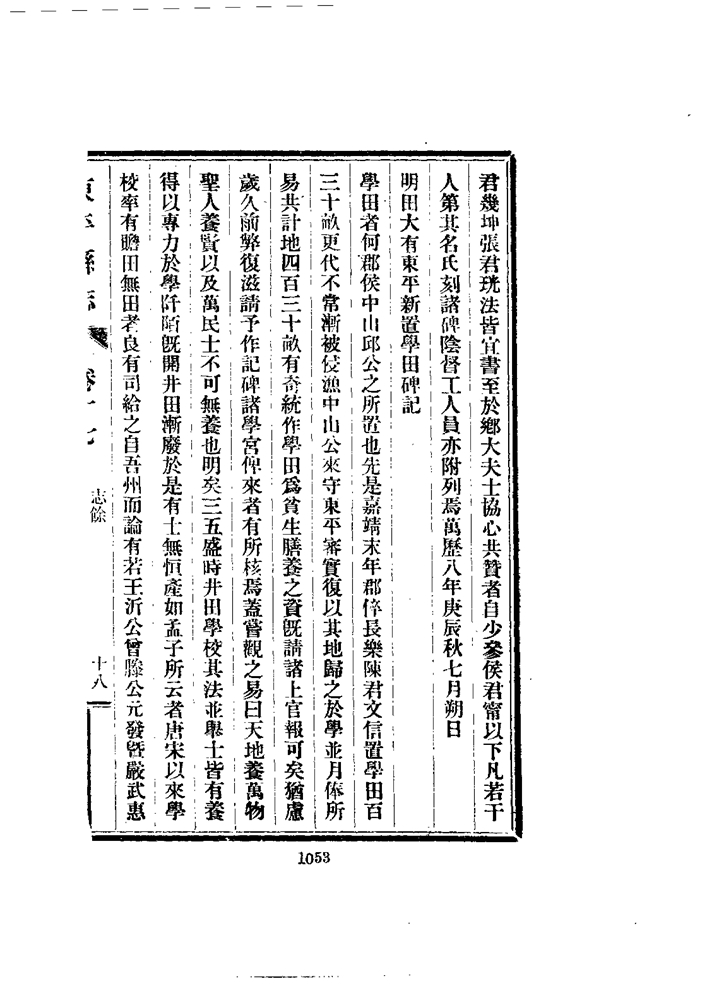 君幾坤張君珖法皆宜書至於鄉大夫士協心共贊者自少參侯君甯以下凡若干
人第其名氏刻諸碑陰督工人員亦附列焉萬歷八年庚辰秋七月朔日
明田大有東平新置學田碑記
學田者何郡侯中山邱公之所置也先是嘉靖末年郡倅長樂陳君文信置學田百
三十畝更代不常漸被侵漁中山公來守東平審實復以其地歸之於學並月俸所
易共計地四百三十畝有奇統作學田爲貧生膳養之資旣請諸上官報可矣猶慮
歲久前弊復滋請予作記碑諸學宮俾來者有所核焉蓋嘗觀之易曰天地養萬物
聖人養賢以及萬民士不可無養也明矣三五盛時井田學校其法並舉士皆有養
得以專力於學阡陌旣開井田漸廢於是有士無恒產如孟子所云者唐宋以來學
校率有贍田無田者良有司給之自吾州而論有若王沂公曾滕公元發曁嚴武惠
東平縣志 卷十七 志餘 十八
1053